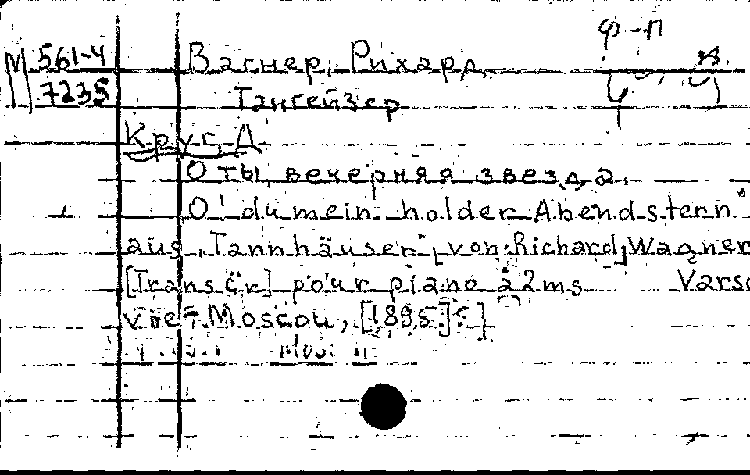 ф-п
М 561-4 Вагнер, Рихард.
7235 Тангейзер
Круг, Д
О ты, вечерняя звезда.
O' du mein holder Abendstern"
aus "Tannhäuser", von Richard Wagner
[Transcr] pour piano à 2ms Varso
vie7. Moscou, [1895]